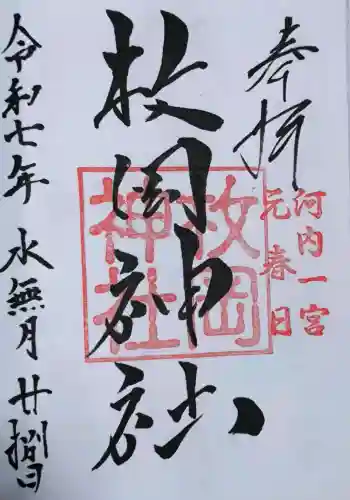 奉拝
河内一宮
元春日
枚岡神社
枚岡神社
令和七年 水無月 廿捌日